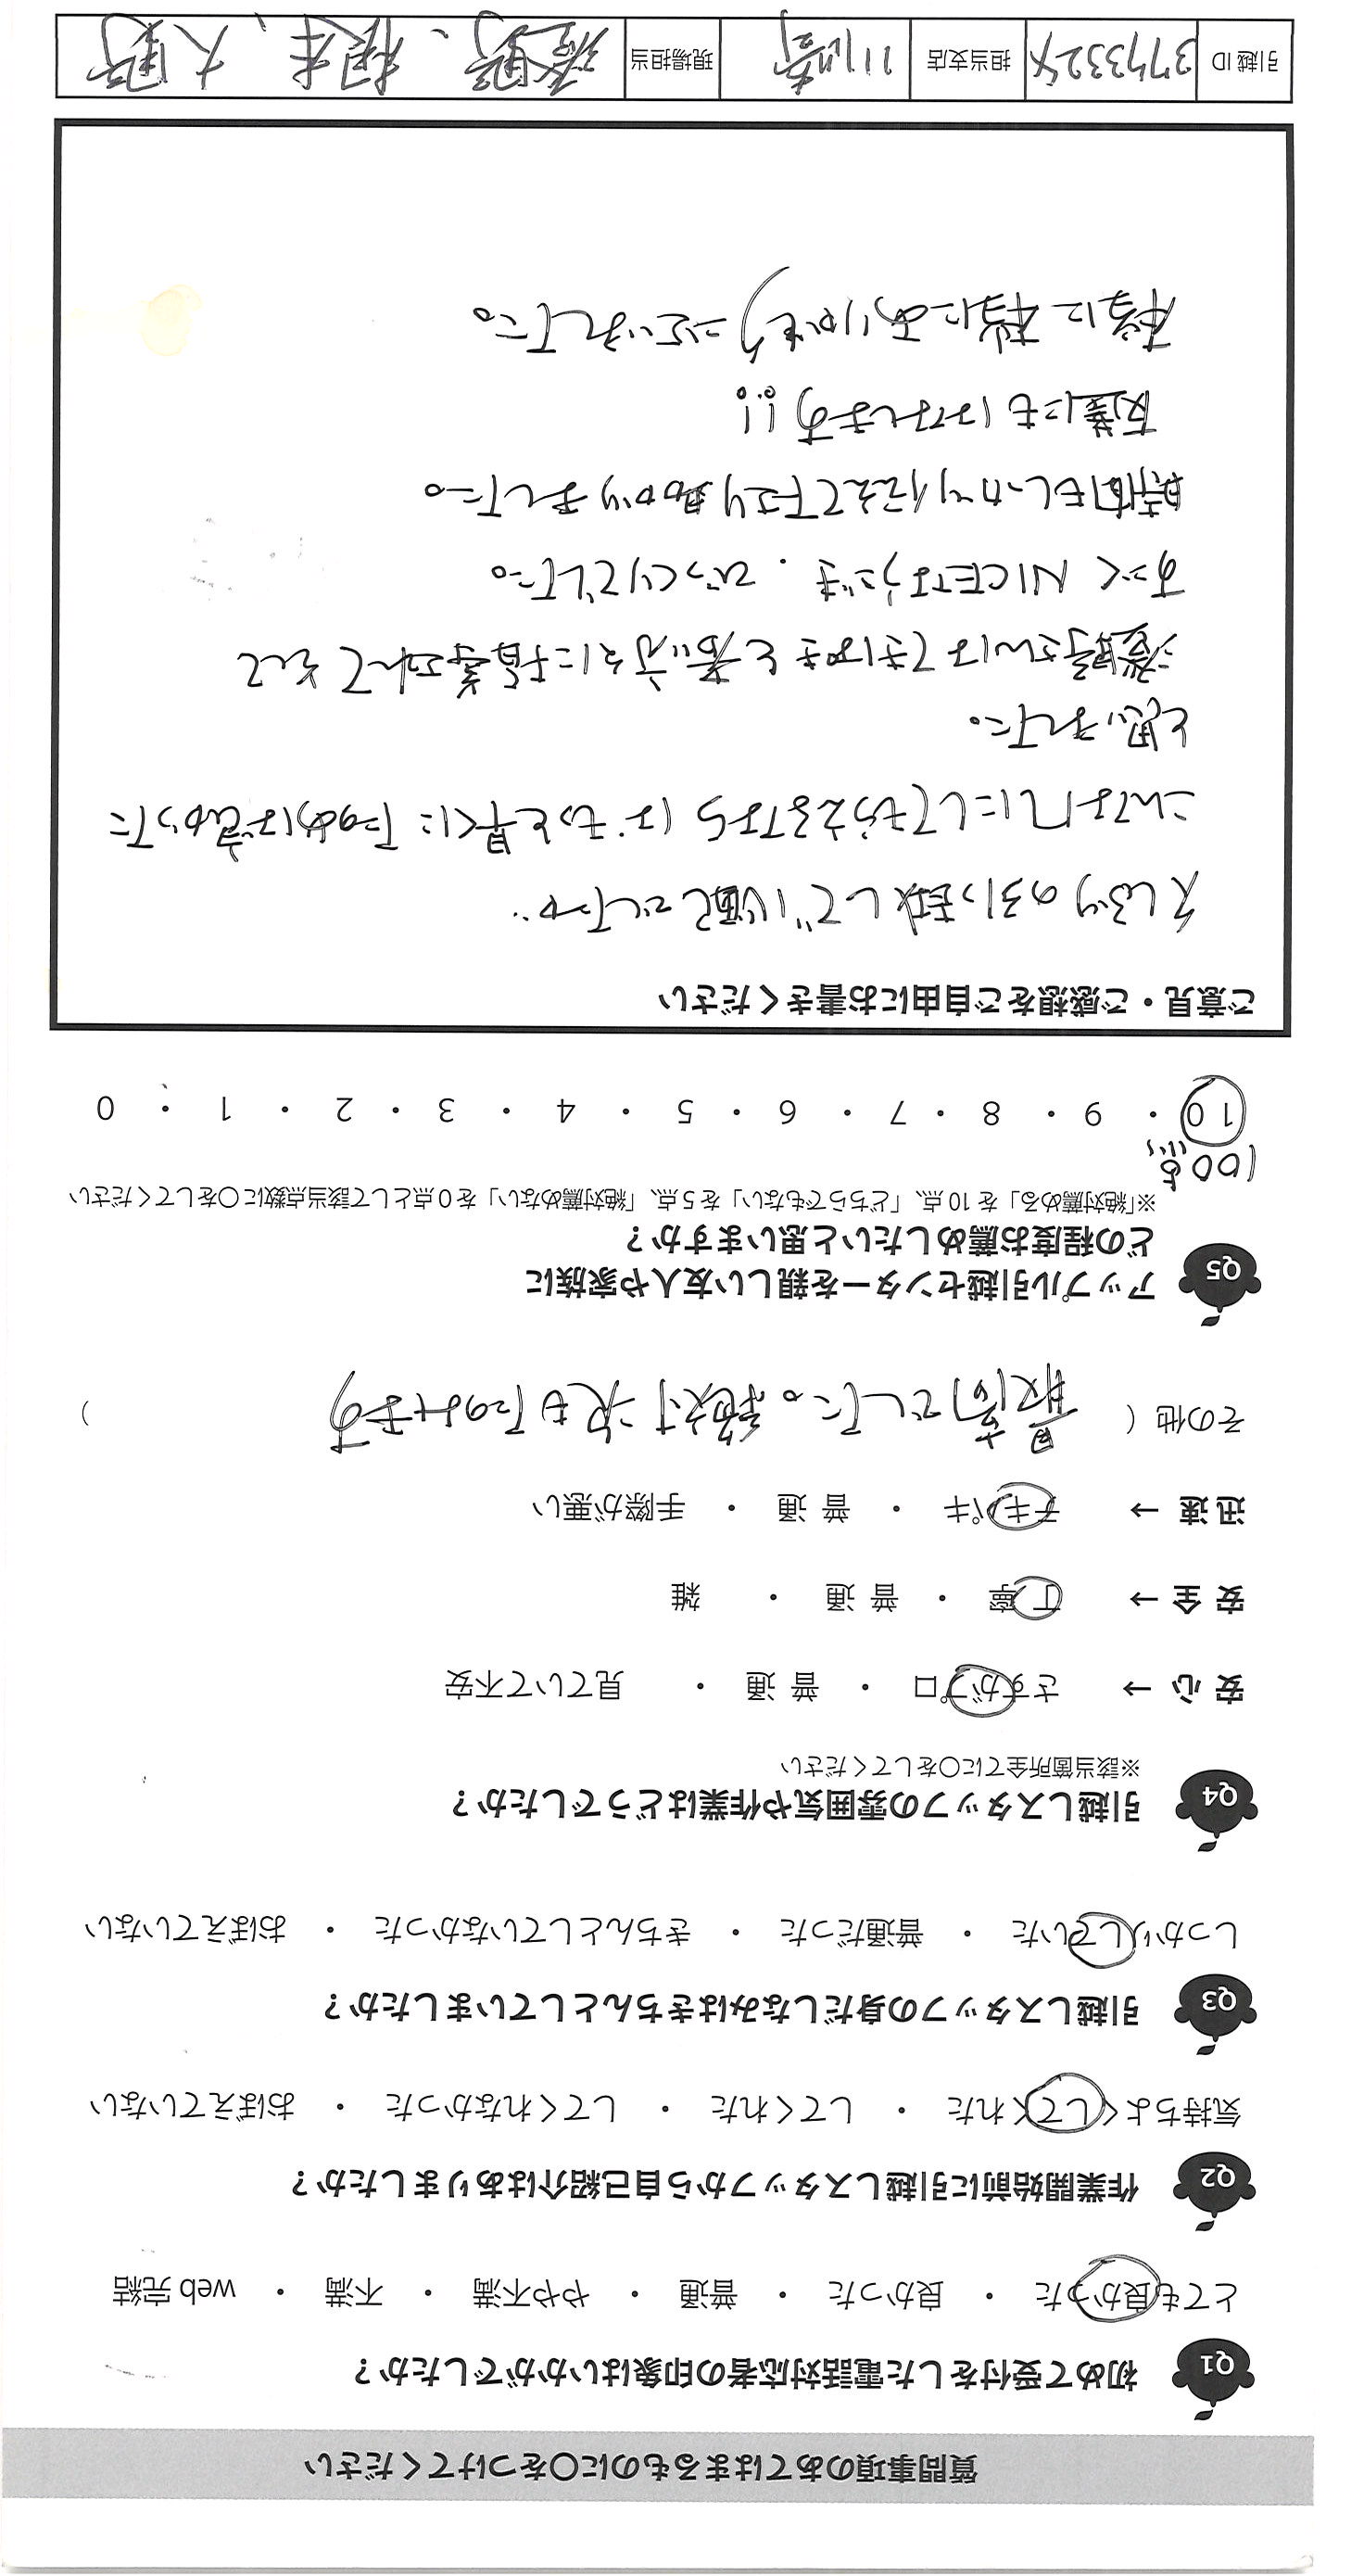 質問事項のあてはまるものに〇をつけてください
Q1 初めて受付をした電話対応者の印象はいかがでしたか？
とても良かった ・ 良かった ・ 普通 ・ やや不満 ・ 不満 ・ web 完結
Q2 作業開始前に引越しスタッフから自己紹介はありましたか？
気持ちよくしてくれた ・ してくれた ・ してくれなかった ・ おぼえていない
Q3 引越しスタッフの身だしなみはきちんとしていましたか？
しっかりしていた ・ 普通だった ・ きちんとしていなかった ・ おぼえていない
Q4 引越しスタッフの雰囲気や作業はどうでしたか？
※該当箇所全てに〇をしてください
安 心 → さすがプロ ・ 普 通 ・ 見ていて不安
安 全 → 丁 寧 ・ 普 通 ・ 雑
迅 速 → テキパキ ・ 普 通 ・ 手際が悪い
その他 ( 最高でした。絶対次もたのみます )
Q5 アップル引越センターを親しい友人や家族に
どの程度お薦めしたいと思いますか？
※「絶対薦める」を 10 点、「どちらでもない」を 5 点、「絶対薦めない」を 0 点として該当点数に〇をしてください
100点
10 ・ 9 ・ 8 ・ 7 ・ 6 ・ 5 ・ 4 ・ 3 ・ 2 ・ 1 ・ 0
ご意見・ご感想をご自由にお書きください
久しぶりの引っ越しで心配でしたが…
こんな風にしてもらえるならば もっと早くに たのめば良かった
と思いました。
さんはてきぱきと若い方々に指導されて そして
すごく NICEなうごき . びっくりでした。
時間もしっかり伝えて下さり助かりました。
友達にもはなします!!
本当に本当にありがとうございました。
引越 ID 担当支店 川崎 現場担当 根本、大野